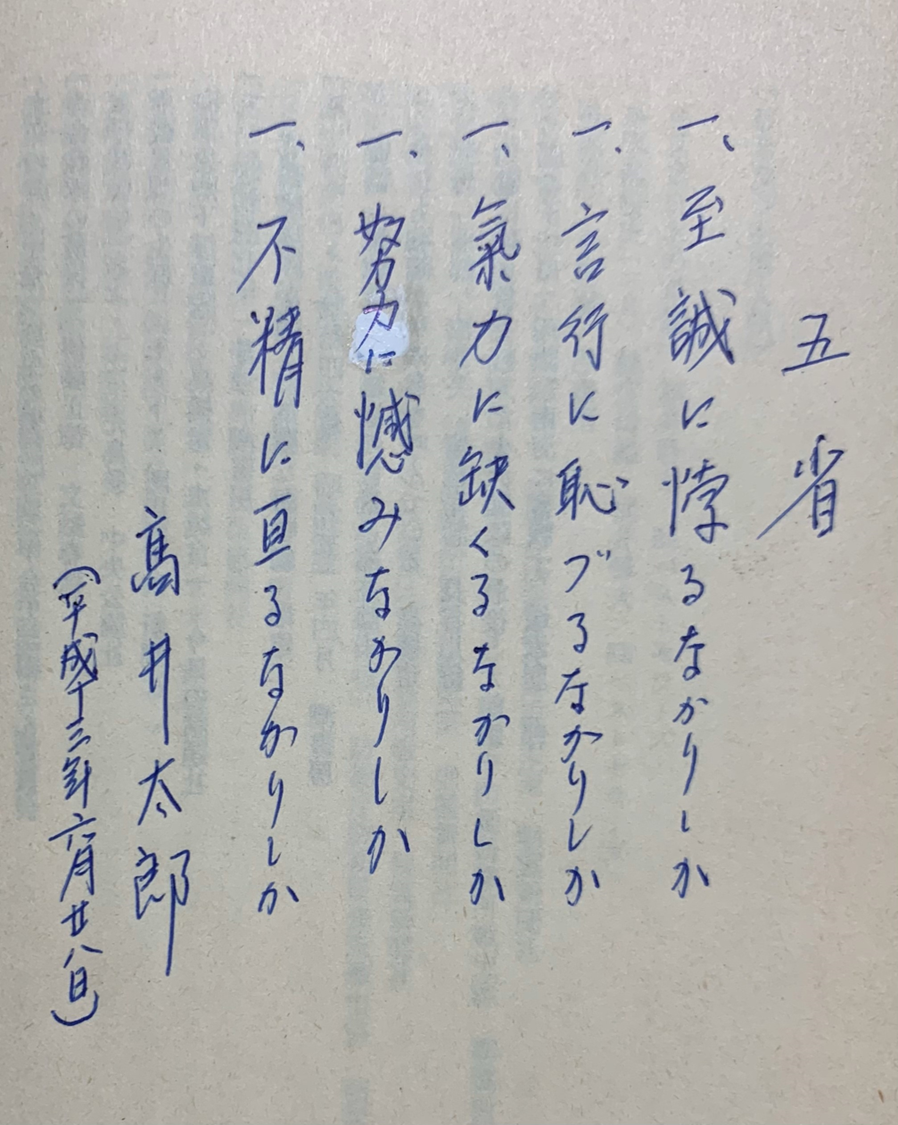 五省
一、至誠に悖るなかりしか
一、言行に恥づるなかりしか
一、氣力に缺くるなかりしか
一、努力に憾みなかりしか
一、不精に亘るなかりしか
髙井太郎
(平成十三年六月廿八日)